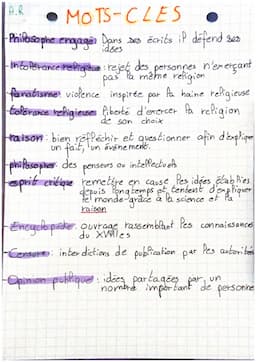 A.R
MOTS-CLES
Philosophe engagé: Dans ses écrits il défend ses
idées
Intolérance religieuse: rejet des personnes n'exerçant
pas la même religion
Fanatisme: violence inspirée par la haine religieuse
tolérance religieuse: liberté d'exercer la religion
de son choix
raison: bien réfléchir et questionner afin d'expliquer
un fait, un évènement.
philosophes: des penseurs ou intellectuels
esprit critique: remettre en cause les idées établies
depuis longtemps et tentent d'expliquer
le monde grâce à la science et la
raison
Encyclopédie: ouvrage rassemblant les connaissances
du XVIIIes
Censure: interdictions de publication par les autorités
Opinion publique: idées partagées par un
nombre important de personne